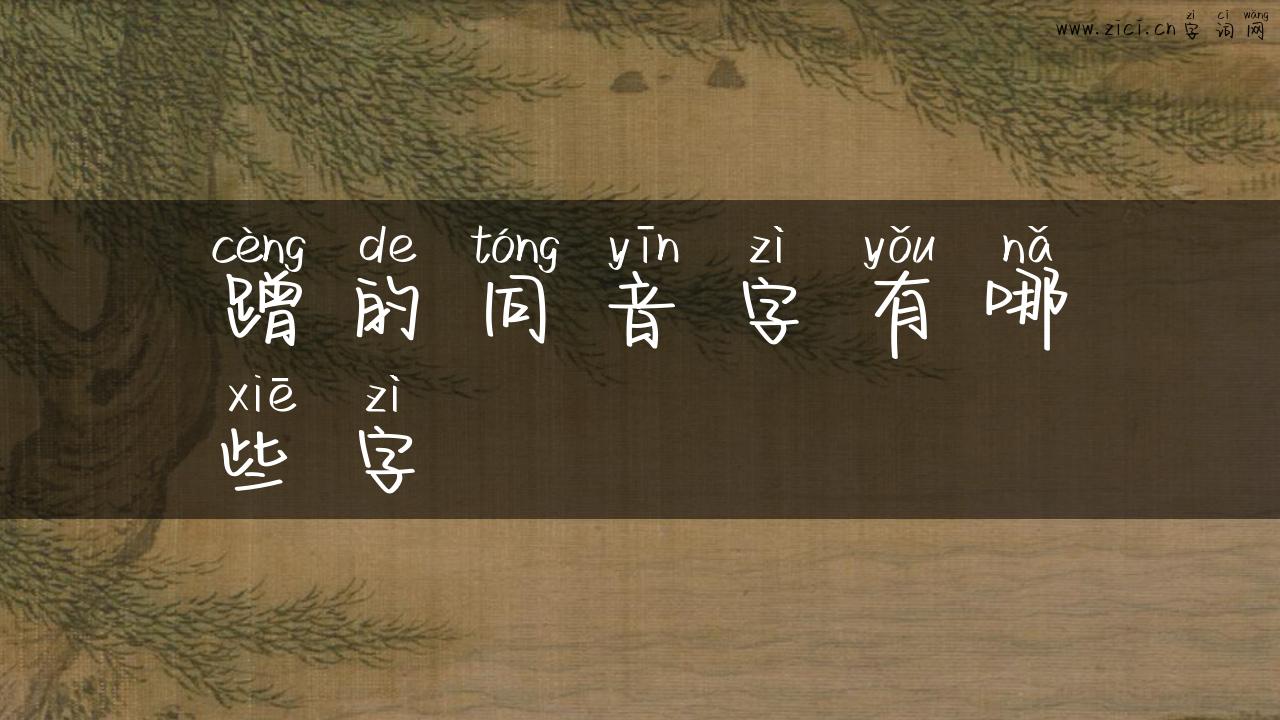 zì cí wǎng
www.zici.cn字词网
cèng de tóng yīn zì yǒu nǎ
蹭的同音字有哪
xiē zì
些字